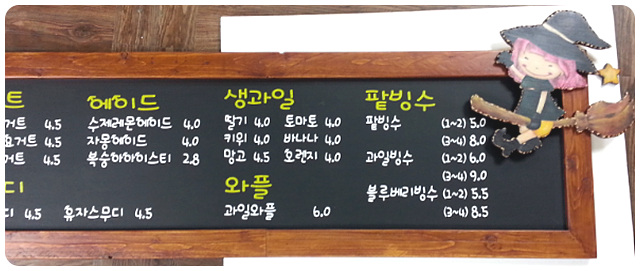 트 에이드 생과일 팥빙수
거트 4.5 수제레몬에이드 4.0 딸기 4.0 토마토 4.0 팥빙수 (1~2) 5.0
요거트 4.5 자몽에이드 4.0 키위 4.0 바나나 4.0 (3~4) 8.0
거트 4.5 복숭아아이스티 2.8 망고 4.5 오렌지 4.0 과일빙수 (1~2) 6.0
(3~4) 9.0
디 와플 블루베리빙수 (1~2) 5.5
디 4.5 유자스무디 4.5 과일와플 6.0 (3~4) 8.5